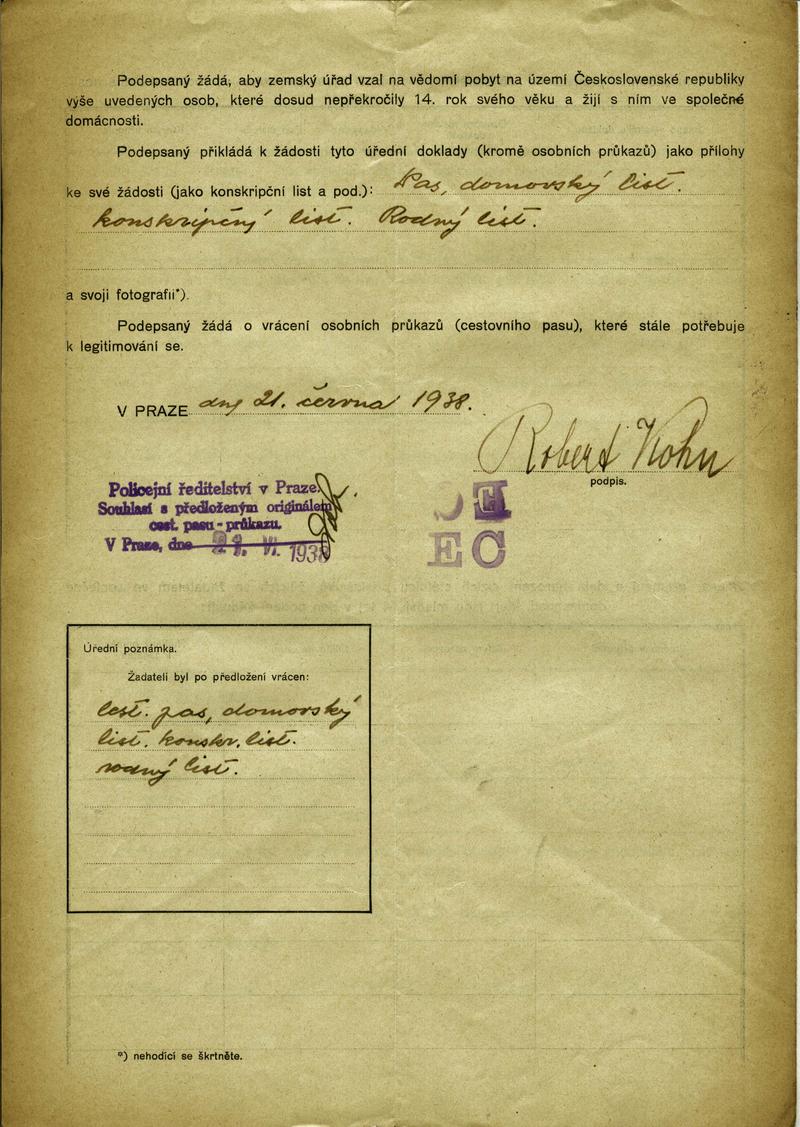 Podepsaný žádá, aby zemský úřad vzal na vědomí pobyt na území Československé republiky
výše uvedených osob, které dosud nepřekročily 14. rok svého věku a žijí s ním ve společné
domácnosti.
Podepsaný přikládá k žádosti tyto úřední doklady (kromě osobních průkazů) jako přílohy
ke své žádosti (jako konskripční list a pod.): Pas, domovský list.
konskripčný list. Rodný list.
a svoji fotografii*).
Podepsaný žádá o vrácení osobních průkazů (cestovního pasu), které stále potřebuje
k legitimování se.
V PRAZE dny 21. června 1938.
Robert Kohn
podpis.
Policejní ředitelství v Praze.
Souhlasí s předloženým originálem
cest. pasu - průkazu.
V Praze, dne VI. 1938
EC
Úřední poznámka.
Žadateli byl po předložení vrácen:
cest. pas, domovský
list, konskr. list.
rodný list.
*) nehodící se škrtněte.